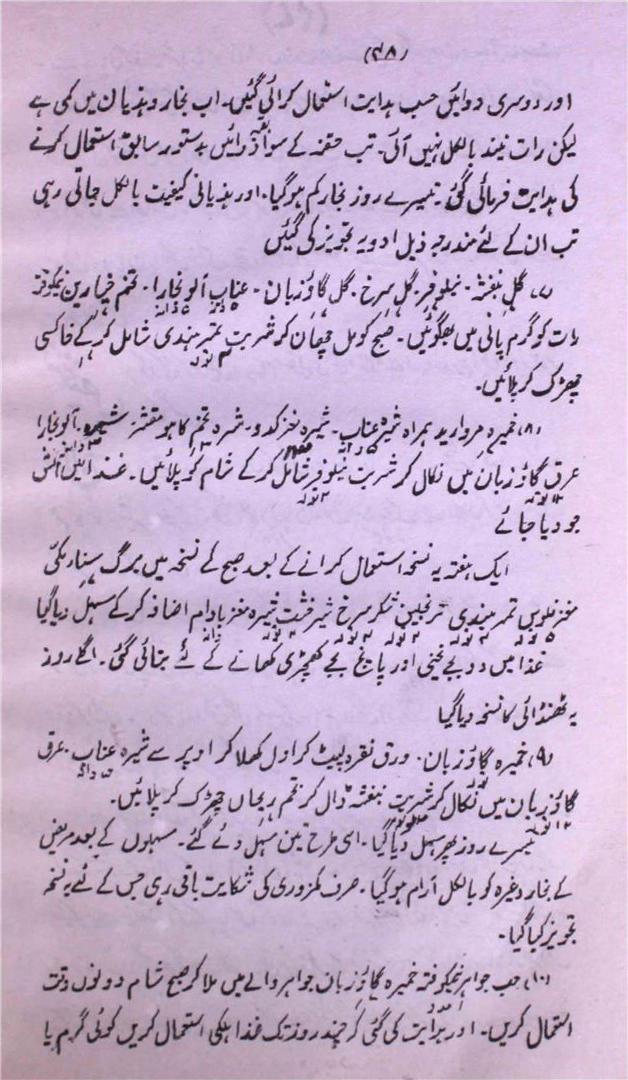 (۴۸)
اور دوسری دوائیں حسب ہدایت استعمال کرائی گئیں۔ اب بخار و ہذیان میں کمی ہے
لیکن رات نیند بالکل نہیں آئی۔ تب حقنہ کے سوا بقیہ دوائیں بدستور سابق استعمال کرنے
کی ہدایت فرمائی گئی۔ تیسرے روز بخار کم ہوگیا۔ اور ہذیانی کیفیت بالکل جاتی رہی
تب ان کے لئے مندرجہ ذیل ادویہ تجویز کی گئیں
(۷) گل بنفشہ - نیلوفر - گل سرخ - گل گاؤزبان - عناب - آلو بخارا - تخم خیارین نیکوفتہ
رات کو گرم پانی میں بھگوئیں۔ صبح کو مل چھان کر شربت تمر ہندی شامل کر کے خاکسی
چھڑک کر پلائیں۔
(۸) خمیرہ مروارید ہمراہ شیرہ عناب - شیرہ مغز کدو - شیرہ تخم کاہو مقشر - شیرہ آلو بخارا
عرق گاؤزبان میں نکال کر شربت نیلوفر شامل کر کے شام کو پلائیں۔ غذا میں آش
جو دیا جائے
ایک ہفتہ یہ نسخہ استعمال کرانے کے بعد صبح کے نسخہ میں برگ سناء مکی
مغز فلوس تمر ہندی ترنجبین شکر سرخ شیرخشت شیرہ مغز بادام اضافہ کر کے مسہل دیا گیا
غذا میں دو بجے یخنی اور پانچ بجے کھچڑی کھانے کے لئے بتائی گئی۔ اگلے روز
یہ ٹھنڈائی کا نسخہ دیا گیا
(۹) خمیرہ گاؤزبان - ورق نقرہ لپیٹ کر اول کھلا کر اوپر سے شیرہ عناب - عرق
گاؤزبان میں نکال کر شربت بنفشہ ڈال کر تخم ریحاں چھڑک کر پلائیں۔
تیسرے روز پھر مسہل دیا گیا۔ اسی طرح تین مسہل دئے گئے۔ مسہلوں کے بعد مریض
کے بخار وغیرہ کو بالکل آرام ہوگیا۔ صرف کمزوری کی شکایت باقی رہی جس کے لئے یہ نسخہ
تجویز کیا گیا۔
(۱۰) حب جواہر نیکوفتہ خمیرہ گاؤزبان جواہر والے میں ملا کر صبح شام دونوں وقت
استعمال کریں۔ اور ہدایت کی گئی کہ چند روز تک غذا ہلکی استعمال کریں کوئی گرم یا